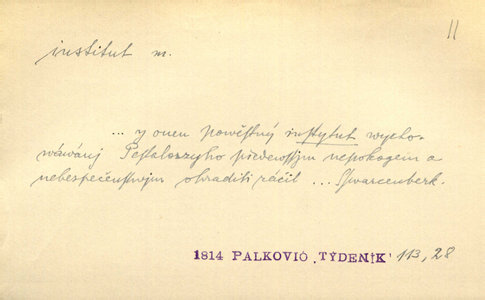 11
institut m.
... y onen powěstný instytut wycho-
wáwánj Pestalozzyho předewssjm nepokogem a
nebezpečenstwjm ohraditi ráčil ... Sswarcenberk.
1814 PALKOVIČ ‚TÝDENÍK‘ 113, 28